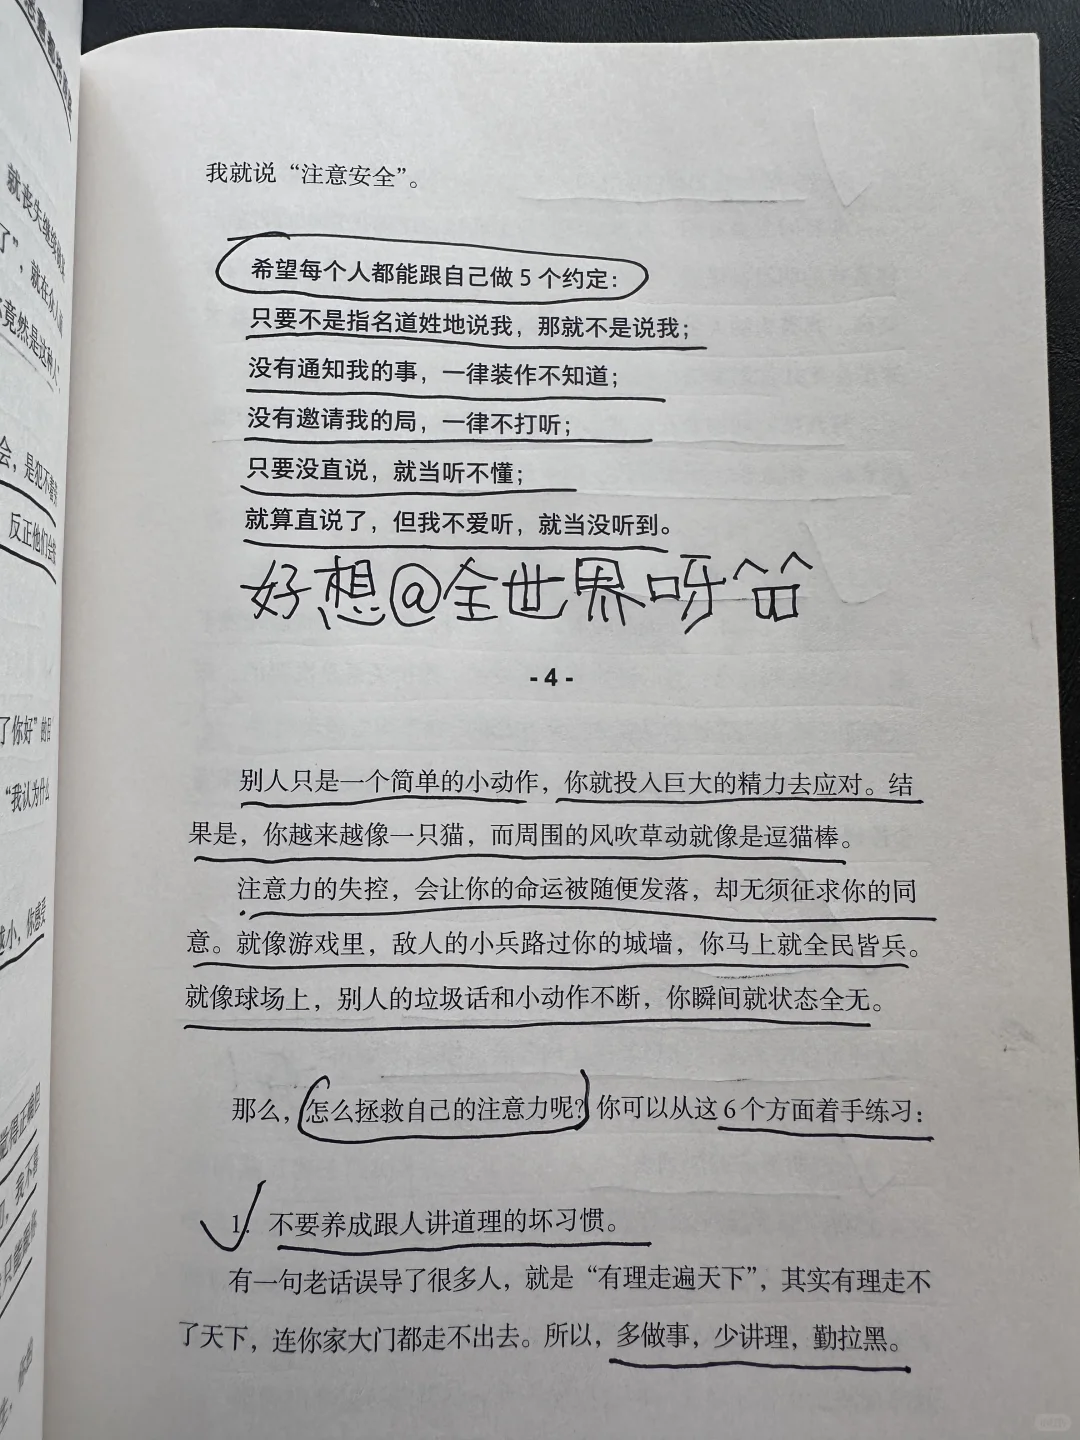 我就说“注意安全”。
希望每个人都能跟自己做 5 个约定：
只要不是指名道姓地说我，那就不是说我；
没有通知我的事，一律装作不知道；
没有邀请我的局，一律不打听；
只要没直说，就当听不懂；
就算直说了，但我不爱听，就当没听到。
好想@全世界呀
- 4 -
别人只是一个简单的小动作，你就投入巨大的精力去应对。结
果是，你越来越像一只猫，而周围的风吹草动就像是逗猫棒。
注意力的失控，会让你的命运被随便发落，却无须征求你的同
意。就像游戏里，敌人的小兵路过你的城墙，你马上就全民皆兵。
就像球场上，别人的垃圾话和小动作不断，你瞬间就状态全无。
那么，怎么拯救自己的注意力呢？你可以从这 6 个方面着手练习：
1. 不要养成跟人讲道理的坏习惯。
有一句老话误导了很多人，就是“有理走遍天下”，其实有理走不
了天下，连你家大门都走不出去。所以，多做事，少讲理，勤拉黑。
就丧失继续
了”，就在众人
竟然是这种人
会，是犯不着
反正他们会
了你好”的
“我认为什么
越小，你感受
觉得正确但
我不喜